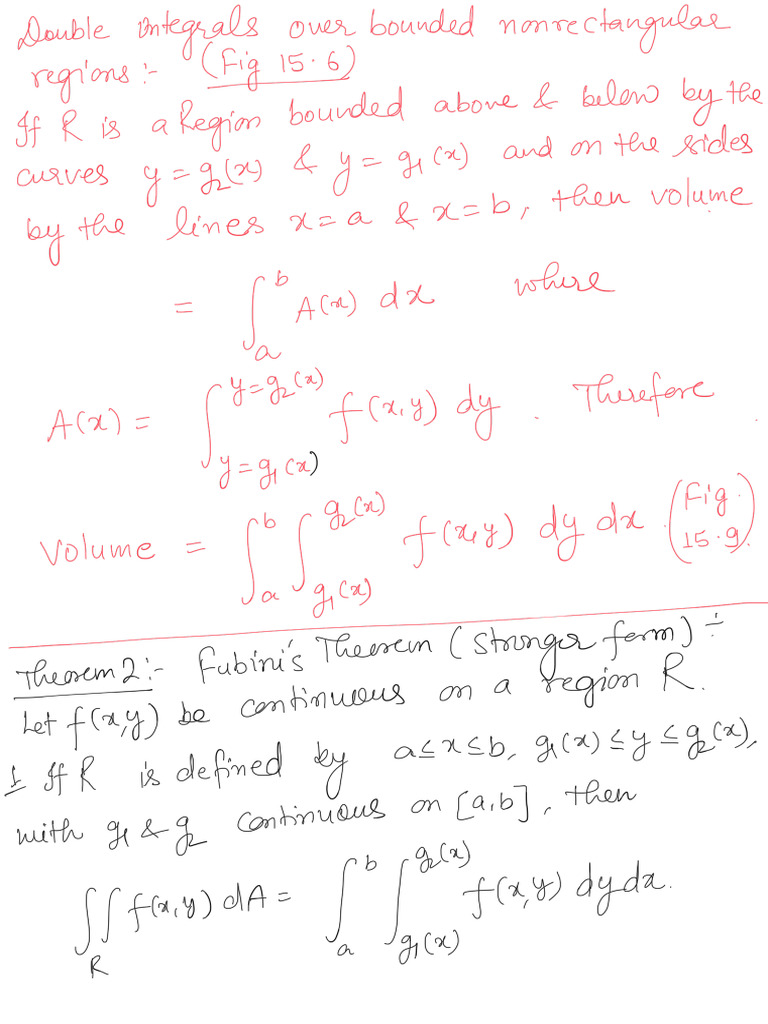 Double integrals over bounded nonrectangular
regions:- (Fig 15.6)
If R is a Region bounded above & below by the
curves y = g₂(x) & y = g₁(x) and on the sides
by the lines x = a & x = b, then volume
= ∫ₐᵇ A(x) dx where
A(x) = ∫_{y=g₁(x)}^{y=g₂(x)} f(x,y) dy . Therefore
Volume = ∫ₐᵇ ∫_{g₁(x)}^{g₂(x)} f(x,y) dy dx . (Fig. 15.9)
Theorem 2:- Fubini's Theorem (Stronger form) :-
Let f(x,y) be continuous on a region R.
1 If R is defined by a ≤ x ≤ b, g₁(x) ≤ y ≤ g₂(x),
with g₁ & g₂ continuous on [a,b], then
∬_R f(x,y) dA = ∫ₐᵇ ∫_{g₁(x)}^{g₂(x)} f(x,y) dy dx.